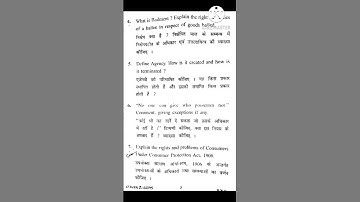 4. What is Bailment ? Explain the rights
of a bailee in respect of goods bailed.
निक्षेप क्या है ? निक्षेपित माल के सम्बन्ध में
निक्षेपग्रहीता के अधिकार एवं की व्याख्या
कीजिए ।
5. Define Agency. How is it created and how is
it terminated ?
एजेन्सी को परिभाषित कीजिए । यह किस प्रकार
स्थापित होती है और इसकी समाप्ति किस प्रकार
होती है ?
6. "No one can give who possesses not."
Comment, giving exceptions if any.
"कोई भी वह नहीं दे सकता जो उसके अधिकार
में नहीं है ।" टिप्पणी कीजिए, क्या इस नियम के
अपवाद हैं ? व्याख्या कीजिए ।
7. Explain the rights and problems of Consumers
Under Consumer Protection Act, 1986.
उपभोक्ता संरक्षण अधिनियम, 1986 के अन्तर्गत
उपभोक्ताओं के अधिकारों तथा समस्याओं का वर्णन
कीजिए ।
2